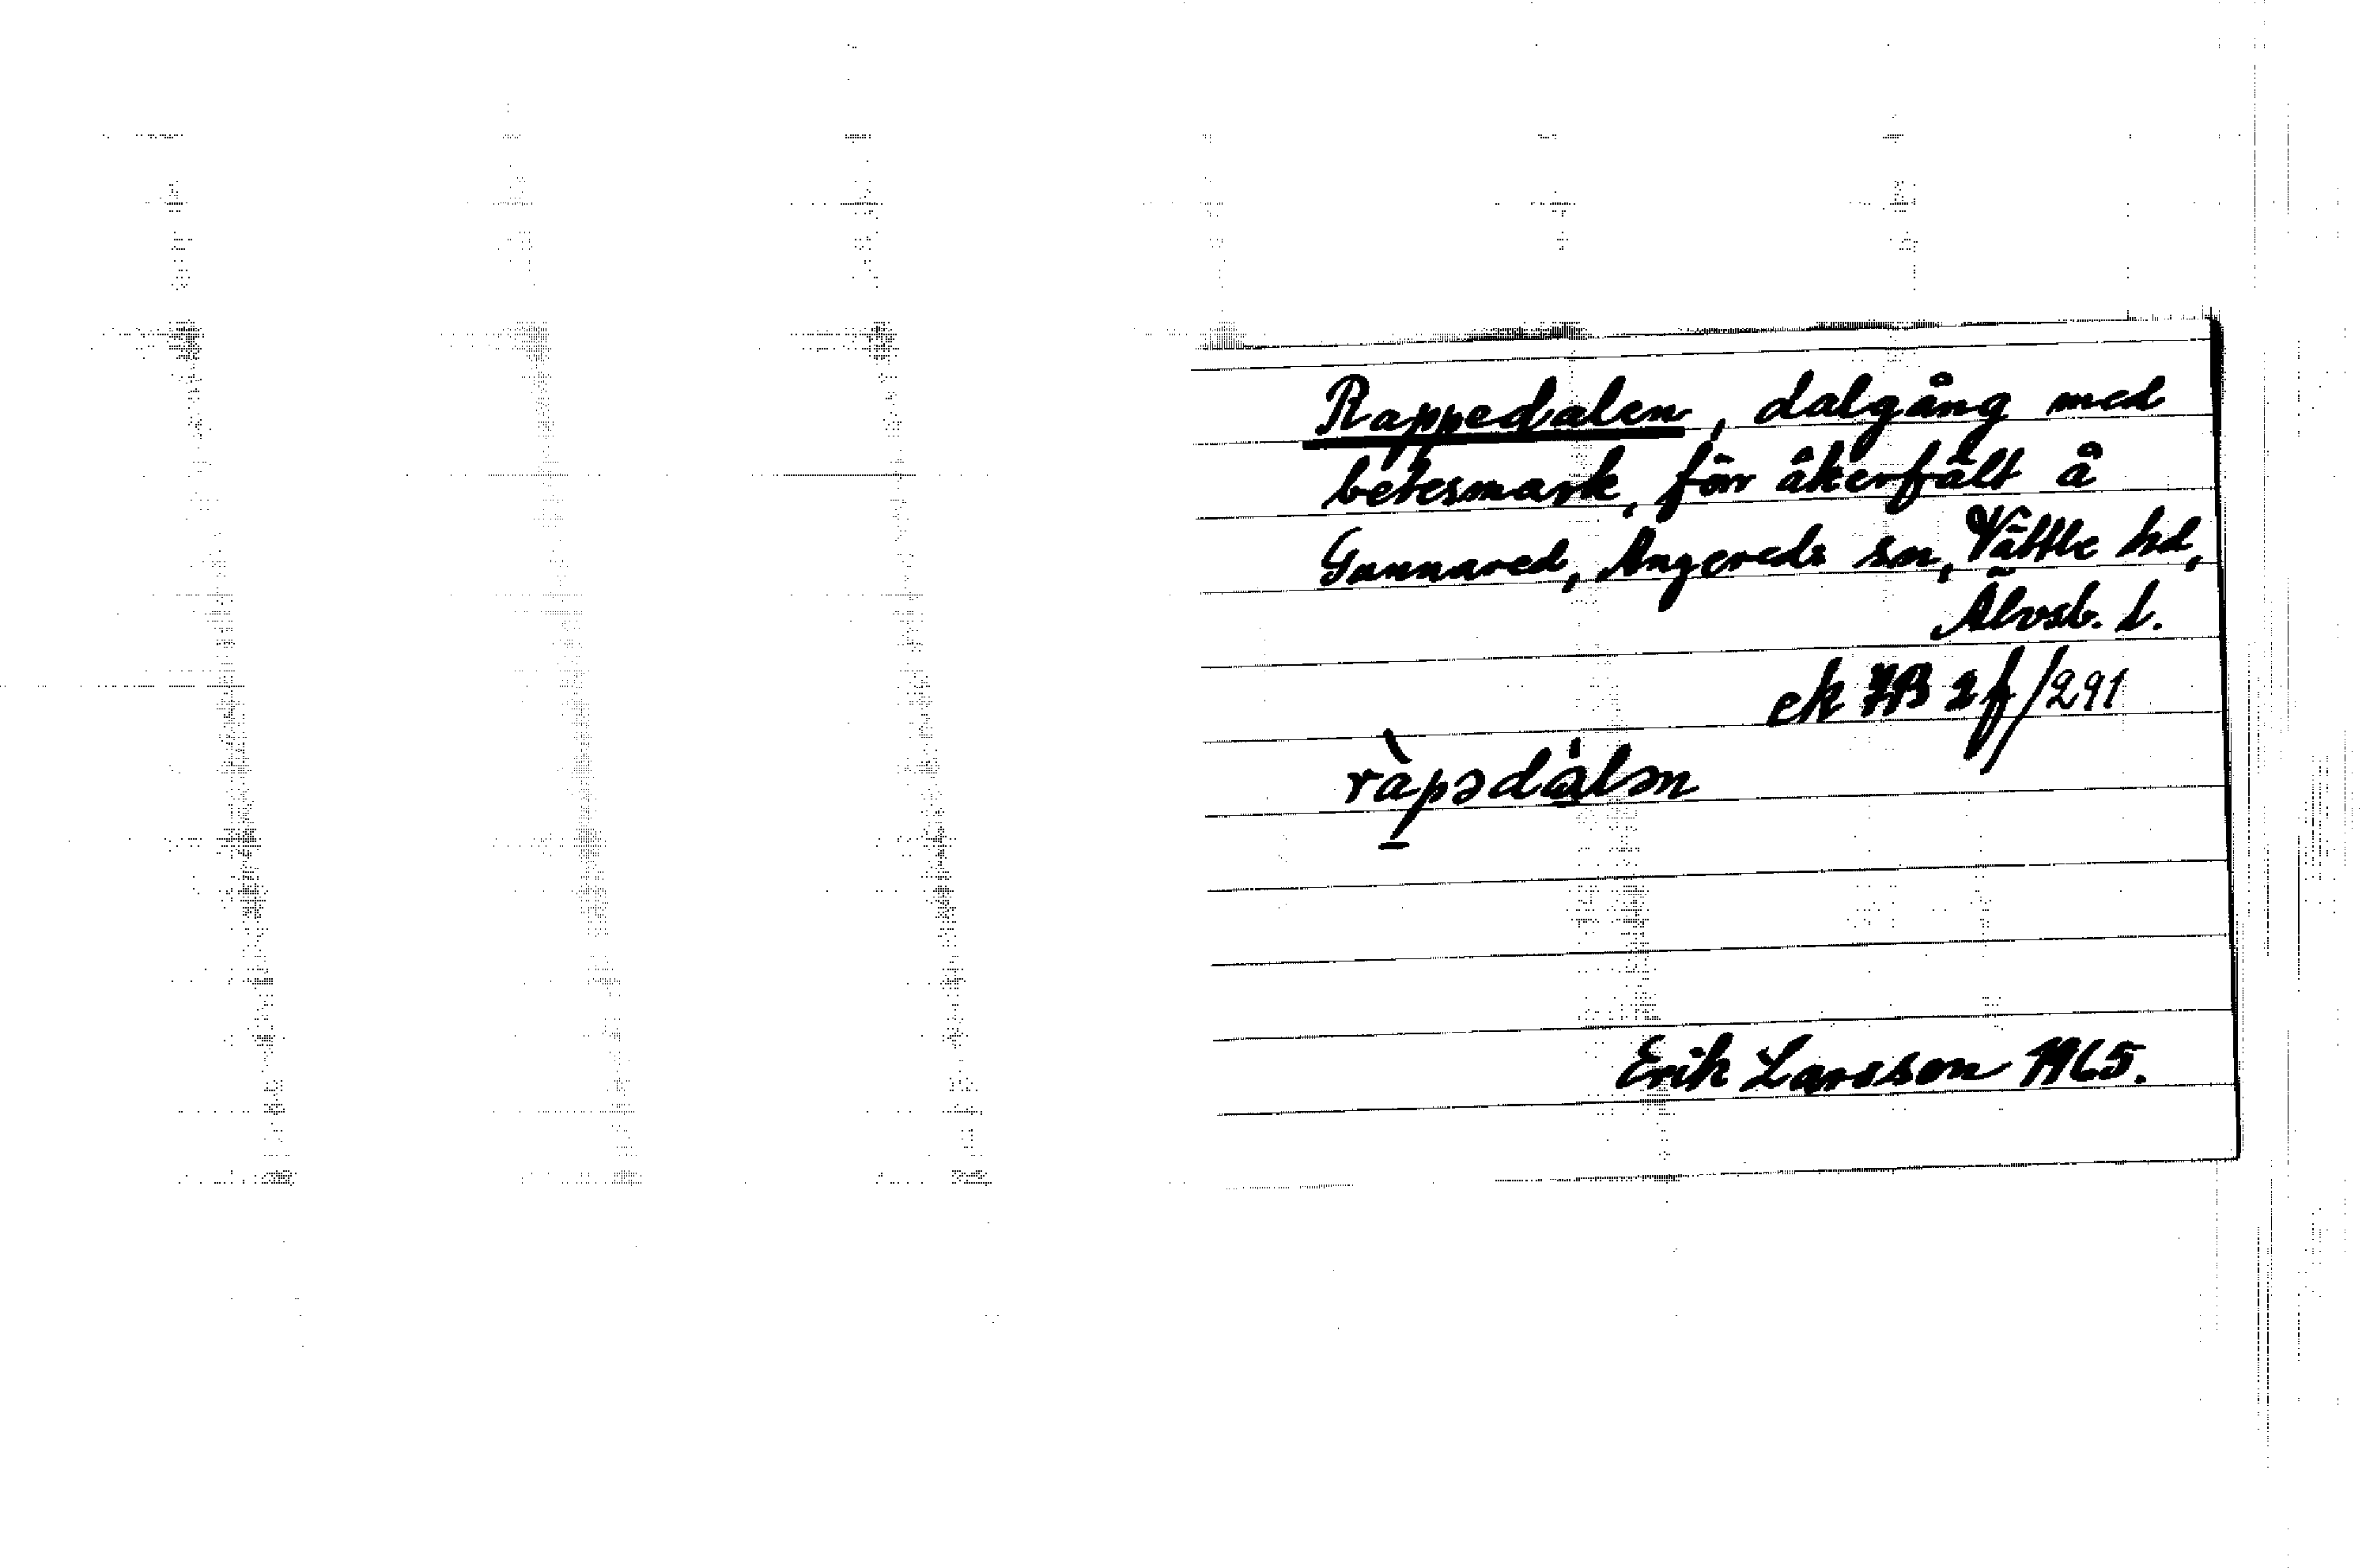 Rappedalen, dalgång med
betesmark, förr åkerfält å
Gunnared, Angereds sn, Vättle hd,
Älvsb. l.
ek 7B 2f/291
ràpədàlən
Erik Larsson 1965.